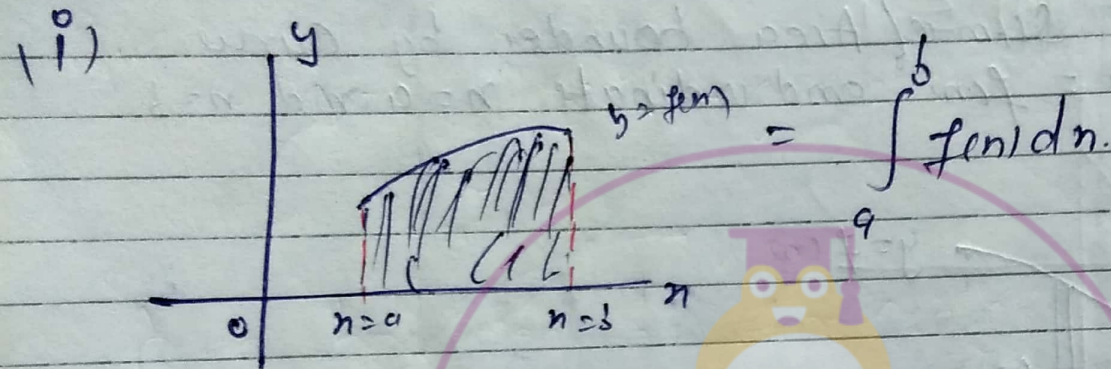 (i)
y
y = f(x)
= ∫ₐᵇ f(x) dx.
x
0 x = a x = b